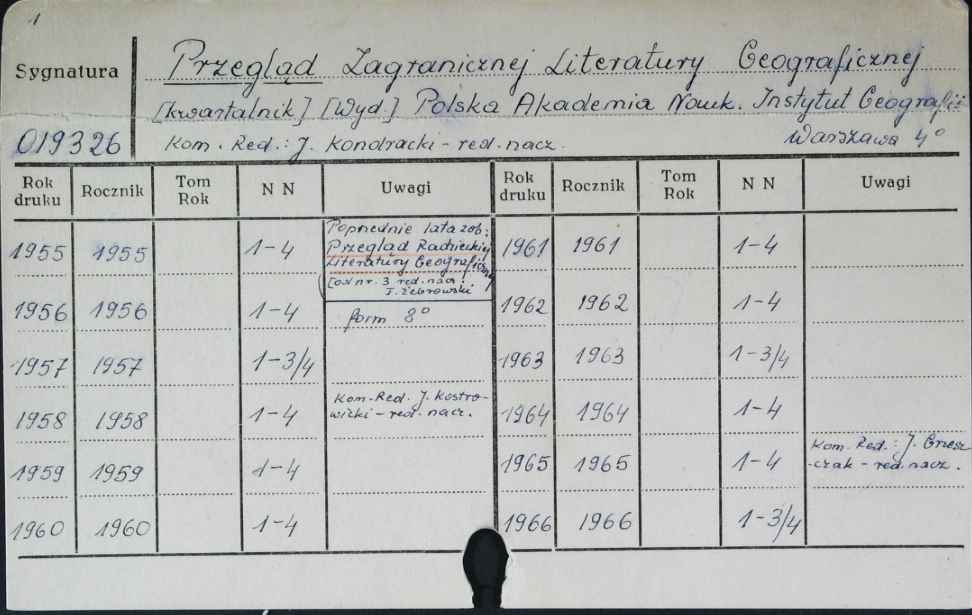 1
Sygnatura
Przegląd Zagranicznej Literatury Geograficznej
[kwartalnik] [Wyd.] Polska Akademia Nauk. Instytut Geografii
019326
Kom. Red.: J. Kondracki - red. nacz. Warszawa 4°
Rok druku Rocznik Tom Rok N N Uwagi Rok druku Rocznik Tom Rok N N Uwagi
1955 1955 1-4 1961 1961 1-4
Poprzednie lata zob:
Przegląd Radzieckiej
Literatury Geograficznej
[od nr. 3 red. nacz.:
T. Żebrowski
1956 1956 1-4 form 8° 1962 1962 1-4
1957 1957 1-3/4 1963 1963 1-3/4
1958 1958 1-4 1964 1964 1-4
Kom. Red. J. Kostro-
wicki - red. nacz.
1959 1959 1-4 1965 1965 1-4
Kom. Red.: J. Grzesz-
czak - red. nacz.
1960 1960 1-4 1966 1966 1-3/4